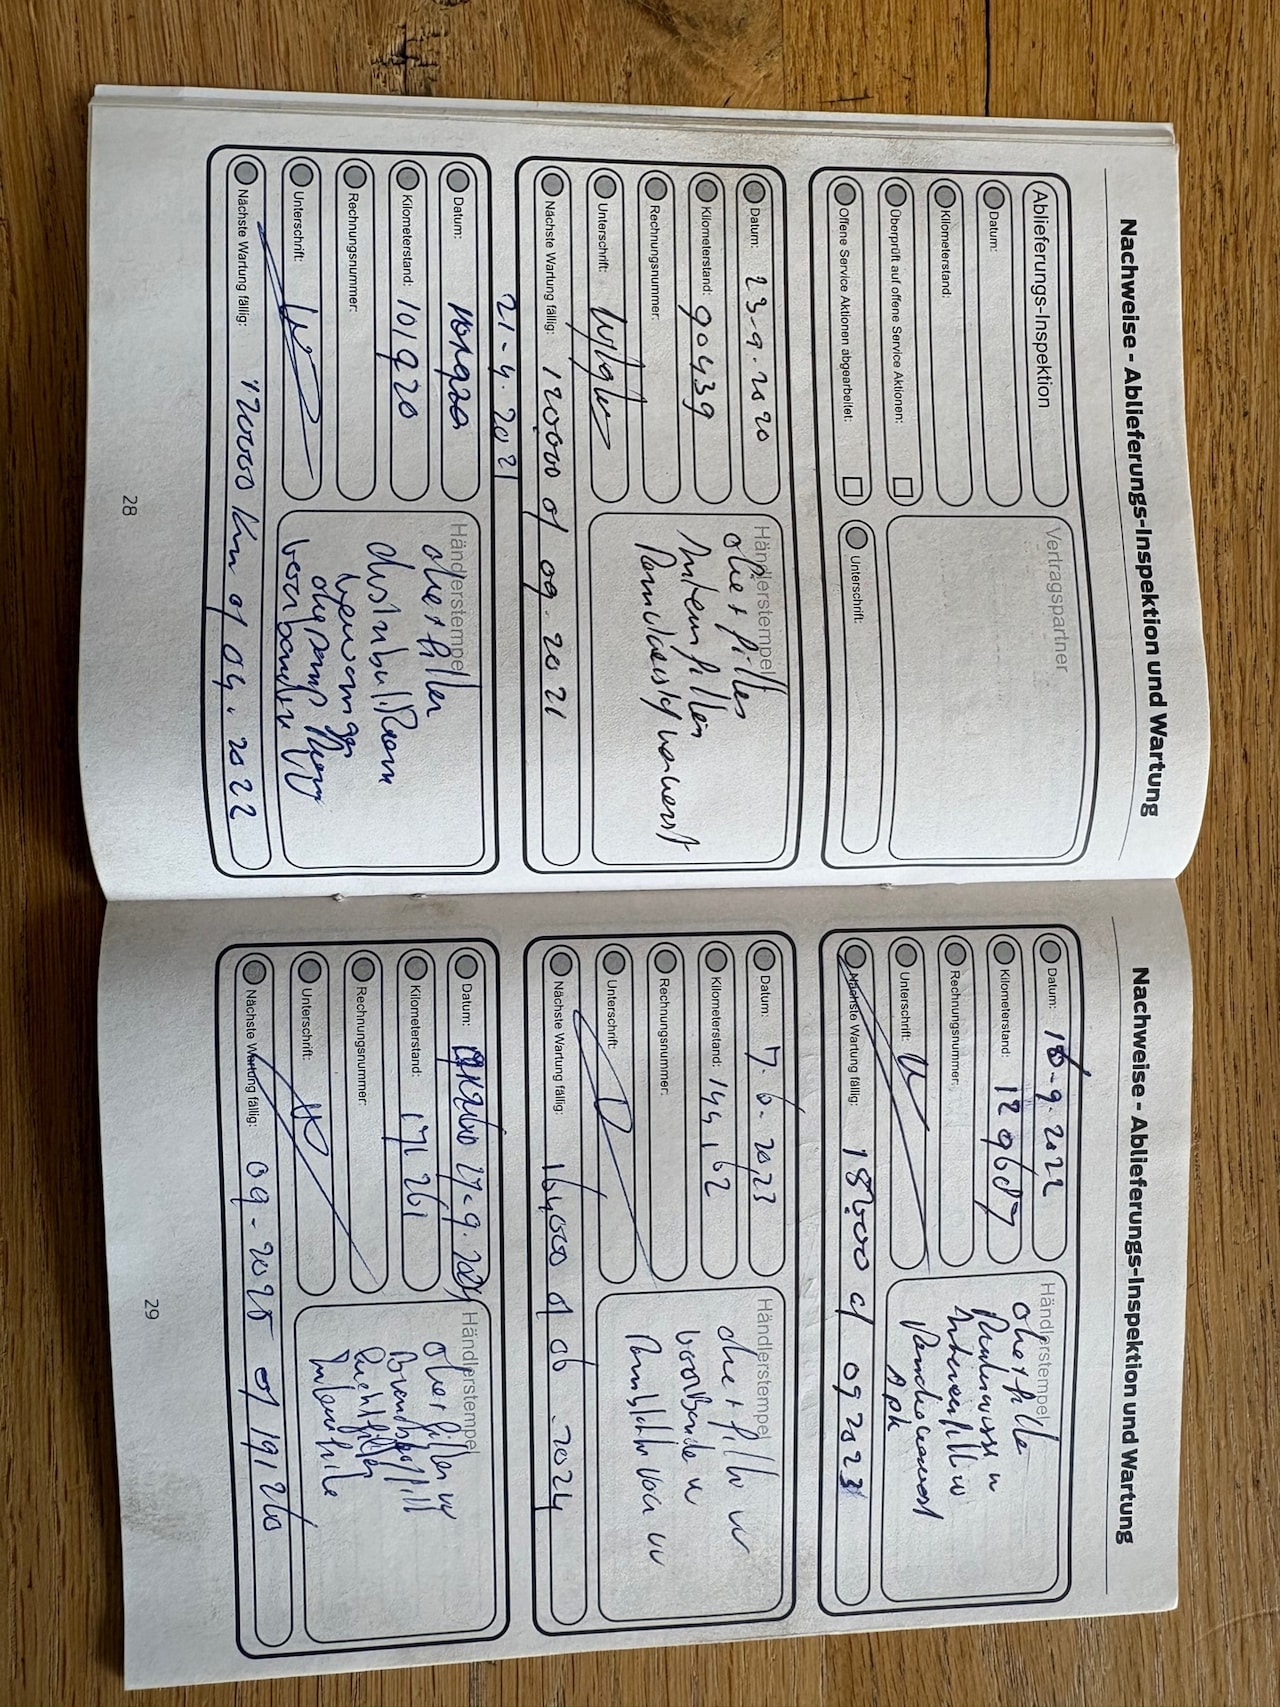 Nachweise - Ablieferungs-Inspektion und Wartung
Ablieferungs-Inspektion
Datum:
Kilometerstand:
Überprüft auf offene Service Aktionen:
Offene Service Aktionen abgearbeitet:
Vertragspartner
Unterschrift:
Datum: 23-9-2020
Kilometerstand: 90439
Rechnungsnummer:
Unterschrift:
Nächste Wartung fällig: 120000 of 09-2021
Händlerstempel
olie + filter
21-4-2021
Datum:
Kilometerstand: 101920
Rechnungsnummer:
Unterschrift:
Nächste Wartung fällig: 120000 km of 04.2022
Händlerstempel
olie + filter
distributieriem
28
Nachweise - Ablieferungs-Inspektion und Wartung
Datum: 16-9-2022
Kilometerstand: 129687
Rechnungsnummer:
Unterschrift:
Nächste Wartung fällig: of 09 2023
Händlerstempel
olie + filter
Apk
Datum: 7-6-2023
Kilometerstand: 144162
Rechnungsnummer:
Unterschrift:
Nächste Wartung fällig: 164000 of 06-2024
Händlerstempel
olie + filter vv
Datum: 27-9-2024
Kilometerstand: 171261
Rechnungsnummer:
Unterschrift:
Nächste Wartung fällig: 09-2025 of 191260
Händlerstempel
olie + filter vv
luchtfilter
29